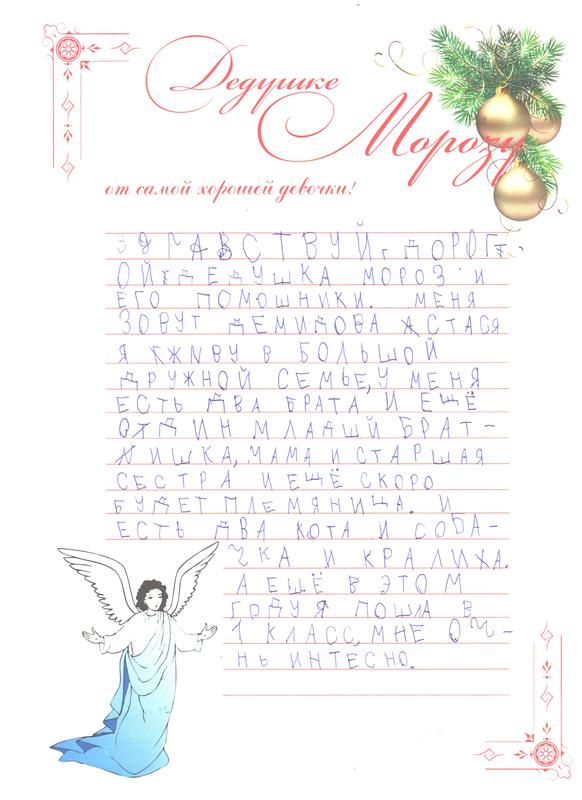 Дедушке
Морозу
от самой хорошей девочки!
ЗДРАВСТВУЙ, ДОРОГ
ОЙ ДЕДУШКА МОРОЗ И
ЕГО ПОМОШНИКИ. МЕНЯ
ЗОВУТ ДЕМИДОВА СТАСЯ
Я ЖИВУ В БОЛЬШОЙ
ДРУЖНОЙ СЕМЬЕ, У МЕНЯ
ЕСТЬ ДВА БРАТА И ЕЩЁ
ОДИН МЛАДШЙ БРАТ-
ИШКА, МАМА И СТАРШАЯ
СЕСТРА И ЕЩЁ СКОРО
БУДЕТ ПЛЕМЯНИЦА. И
ЕСТЬ ДВА КОТА И СОБА-
ЧКА И КРАЛИХА.
А ЕЩЁ В ЭТОМ
ГОДУ Я ПОШЛА В
1 КЛАСС, МНЕ ОЧ-
НЬ ИНТЕСНО.